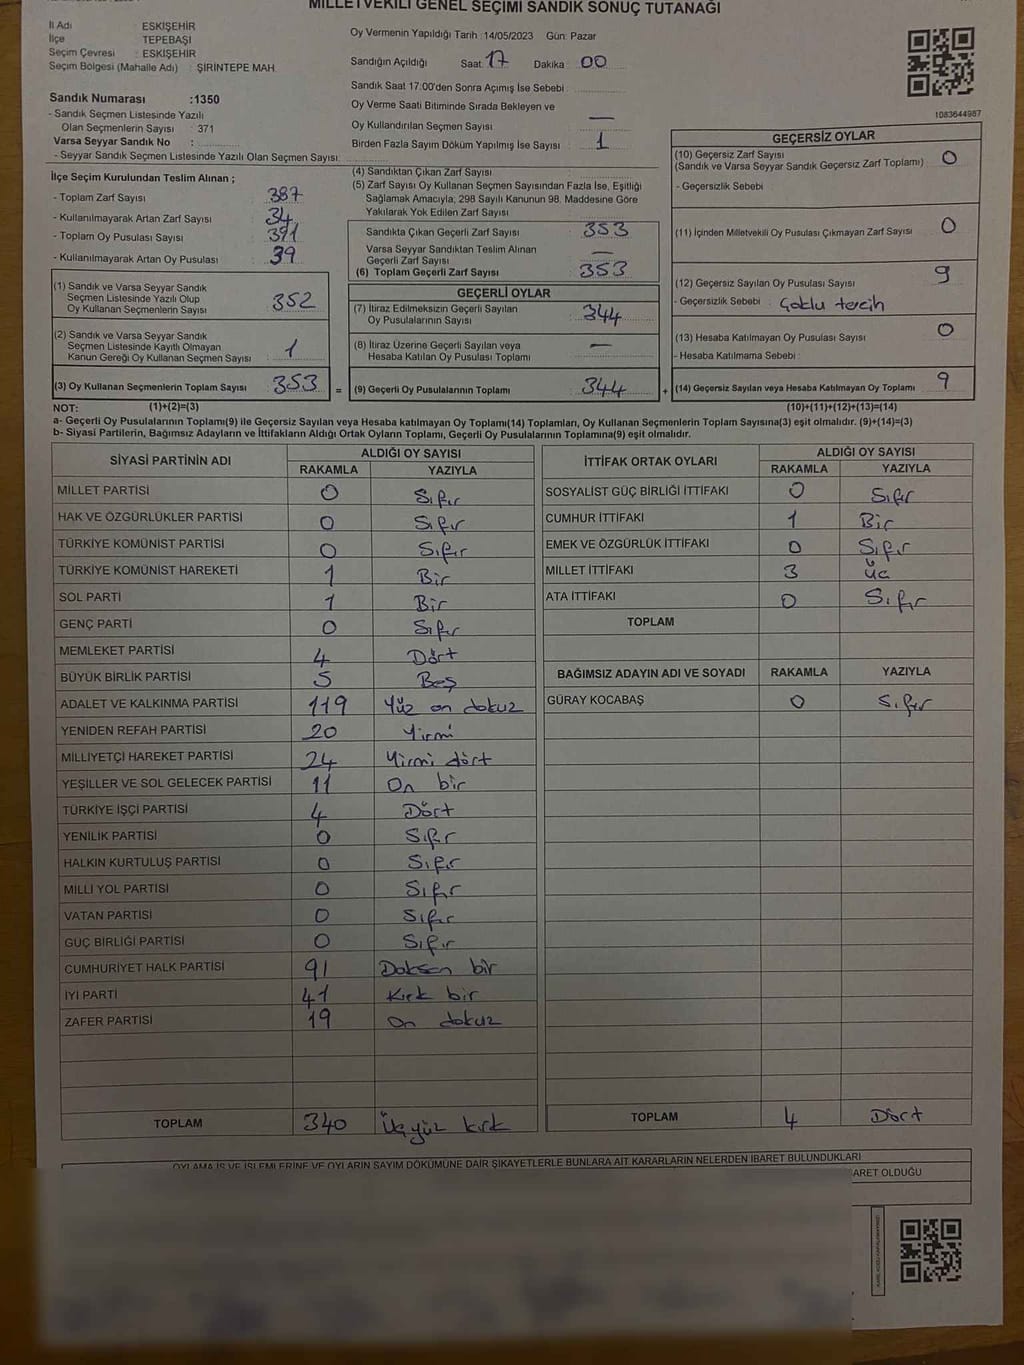 MİLLETVEKİLİ GENEL SEÇİMİ SANDIK SONUÇ TUTANAĞI
İl Adı : ESKİŞEHİR
İlçe TEPEBAŞI
Seçim Çevresi : ESKİŞEHİR
Seçim Bölgesi (Mahalle Adı) : ŞİRİNTEPE MAH.
Oy Vermenin Yapıldığı Tarih :14/05/2023 Gün: Pazar
Sandığın Açıldığı Saat: 17 Dakika : 00
Sandık Saat 17:00'den Sonra Açımış İse Sebebi :
Oy Verme Saati Bitiminde Sırada Bekleyen ve
Oy Kullandırılan Seçmen Sayısı : —
Birden Fazla Sayım Döküm Yapılmış İse Sayısı : 1
1083644987
Sandık Numarası :1350
- Sandık Seçmen Listesinde Yazılı
Olan Seçmenlerin Sayısı : 371
Varsa Seyyar Sandık No :
- Seyyar Sandık Seçmen Listesinde Yazılı Olan Seçmen Sayısı:
İlçe Seçim Kurulundan Teslim Alınan ;
- Toplam Zarf Sayısı : 387
- Kullanılmayarak Artan Zarf Sayısı : 34
- Toplam Oy Pusulası Sayısı : 391
- Kullanılmayarak Artan Oy Pusulası : 39
(1) Sandık ve Varsa Seyyar Sandık
Seçmen Listesinde Yazılı Olup
Oy Kullanan Seçmenlerin Sayısı : 352
(2) Sandık ve Varsa Seyyar Sandık
Seçmen Listesinde Kayıtlı Olmayan
Kanun Gereği Oy Kullanan Seçmen Sayısı : 1
(3) Oy Kullanan Seçmenlerin Toplam Sayısı : 353 =
(4) Sandıktan Çıkan Zarf Sayısı :
(5) Zarf Sayısı Oy Kullanan Seçmen Sayısından Fazla İse, Eşitliği
Sağlamak Amacıyla; 298 Sayılı Kanunun 98. Maddesine Göre
Yakılarak Yok Edilen Zarf Sayısı :
Sandıkta Çıkan Geçerli Zarf Sayısı : 353
Varsa Seyyar Sandıktan Teslim Alınan
Geçerli Zarf Sayısı : —
(6) Toplam Geçerli Zarf Sayısı : 353
GEÇERLİ OYLAR
(7) İtiraz Edilmeksizin Geçerli Sayılan
Oy Pusulalarının Sayısı : 344
(8) İtiraz Üzerine Geçerli Sayılan veya
Hesaba Katılan Oy Pusulası Toplamı : —
(9) Geçerli Oy Pusulalarının Toplamı : 344 +
GEÇERSİZ OYLAR
(10) Geçersiz Zarf Sayısı
(Sandık ve Varsa Seyyar Sandık Geçersiz Zarf Toplamı) : 0
- Geçersizlik Sebebi :
(11) İçinden Milletvekili Oy Pusulası Çıkmayan Zarf Sayısı : 0
(12) Geçersiz Sayılan Oy Pusulası Sayısı : 9
- Geçersizlik Sebebi : Çoklu tercih
(13) Hesaba Katılmayan Oy Pusulası Sayısı : 0
- Hesaba Katılmama Sebebi :
(14) Geçersiz Sayılan veya Hesaba Katılmayan Oy Toplamı : 9
NOT: (1)+(2)=(3) (10)+(11)+(12)+(13)=(14)
a- Geçerli Oy Pusulalarının Toplamı(9) ile Geçersiz Sayılan veya Hesaba katılmayan Oy Toplamı(14) Toplamları, Oy Kullanan Seçmenlerin Toplam Sayısına(3) eşit olmalıdır. (9)+(14)=(3)
b- Siyasi Partilerin, Bağımsız Adayların ve İttifakların Aldığı Ortak Oyların Toplamı, Geçerli Oy Pusulalarının Toplamına(9) eşit olmalıdır.
SİYASİ PARTİNİN ADI ALDIĞI OY SAYISI
RAKAMLA YAZIYLA
MİLLET PARTİSİ 0 Sıfır
HAK VE ÖZGÜRLÜKLER PARTİSİ 0 Sıfır
TÜRKİYE KOMÜNİST PARTİSİ 0 Sıfır
TÜRKİYE KOMÜNİST HAREKETİ 1 Bir
SOL PARTİ 1 Bir
GENÇ PARTİ 0 Sıfır
MEMLEKET PARTİSİ 4 Dört
BÜYÜK BİRLİK PARTİSİ 5 Beş
ADALET VE KALKINMA PARTİSİ 119 Yüz on dokuz
YENİDEN REFAH PARTİSİ 20 Yirmi
MİLLİYETÇİ HAREKET PARTİSİ 24 Yirmi dört
YEŞİLLER VE SOL GELECEK PARTİSİ 11 On bir
TÜRKİYE İŞÇİ PARTİSİ 4 Dört
YENİLİK PARTİSİ 0 Sıfır
HALKIN KURTULUŞ PARTİSİ 0 Sıfır
MİLLİ YOL PARTİSİ 0 Sıfır
VATAN PARTİSİ 0 Sıfır
GÜÇ BİRLİĞİ PARTİSİ 0 Sıfır
CUMHURİYET HALK PARTİSİ 91 Doksan bir
İYİ PARTİ 41 Kırk bir
ZAFER PARTİSİ 19 On dokuz
TOPLAM 340 Üçyüz kırk
İTTİFAK ORTAK OYLARI ALDIĞI OY SAYISI
RAKAMLA YAZIYLA
SOSYALİST GÜÇ BİRLİĞİ İTTİFAKI 0 Sıfır
CUMHUR İTTİFAKI 1 Bir
EMEK VE ÖZGÜRLÜK İTTİFAKI 0 Sıfır
MİLLET İTTİFAKI 3 Üç
ATA İTTİFAKI 0 Sıfır
TOPLAM
BAĞIMSIZ ADAYIN ADI VE SOYADI RAKAMLA YAZIYLA
GÜRAY KOCABAŞ 0 Sıfır
TOPLAM 4 Dört
OYLAMA İŞ VE İŞLEMLERİNE VE OYLARIN SAYIM DÖKÜMÜNE DAİR ŞİKAYETLERLE BUNLARA AİT KARARLARIN NELERDEN İBARET BULUNDUKLARI
ARET OLDUĞU